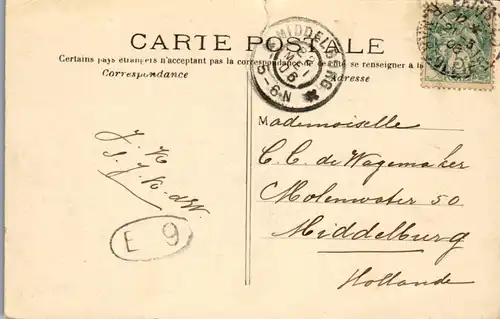 CARTE POSTALE
Certains pays étrangers n'acceptant pas la correspondance de ce côté se renseigner à la
Correspondance
Adresse
MIDDELBURG
5-6N
Mademoiselle
C. C. de Wagemaker
Molenwater 50
Middelburg
Hollande
E 9